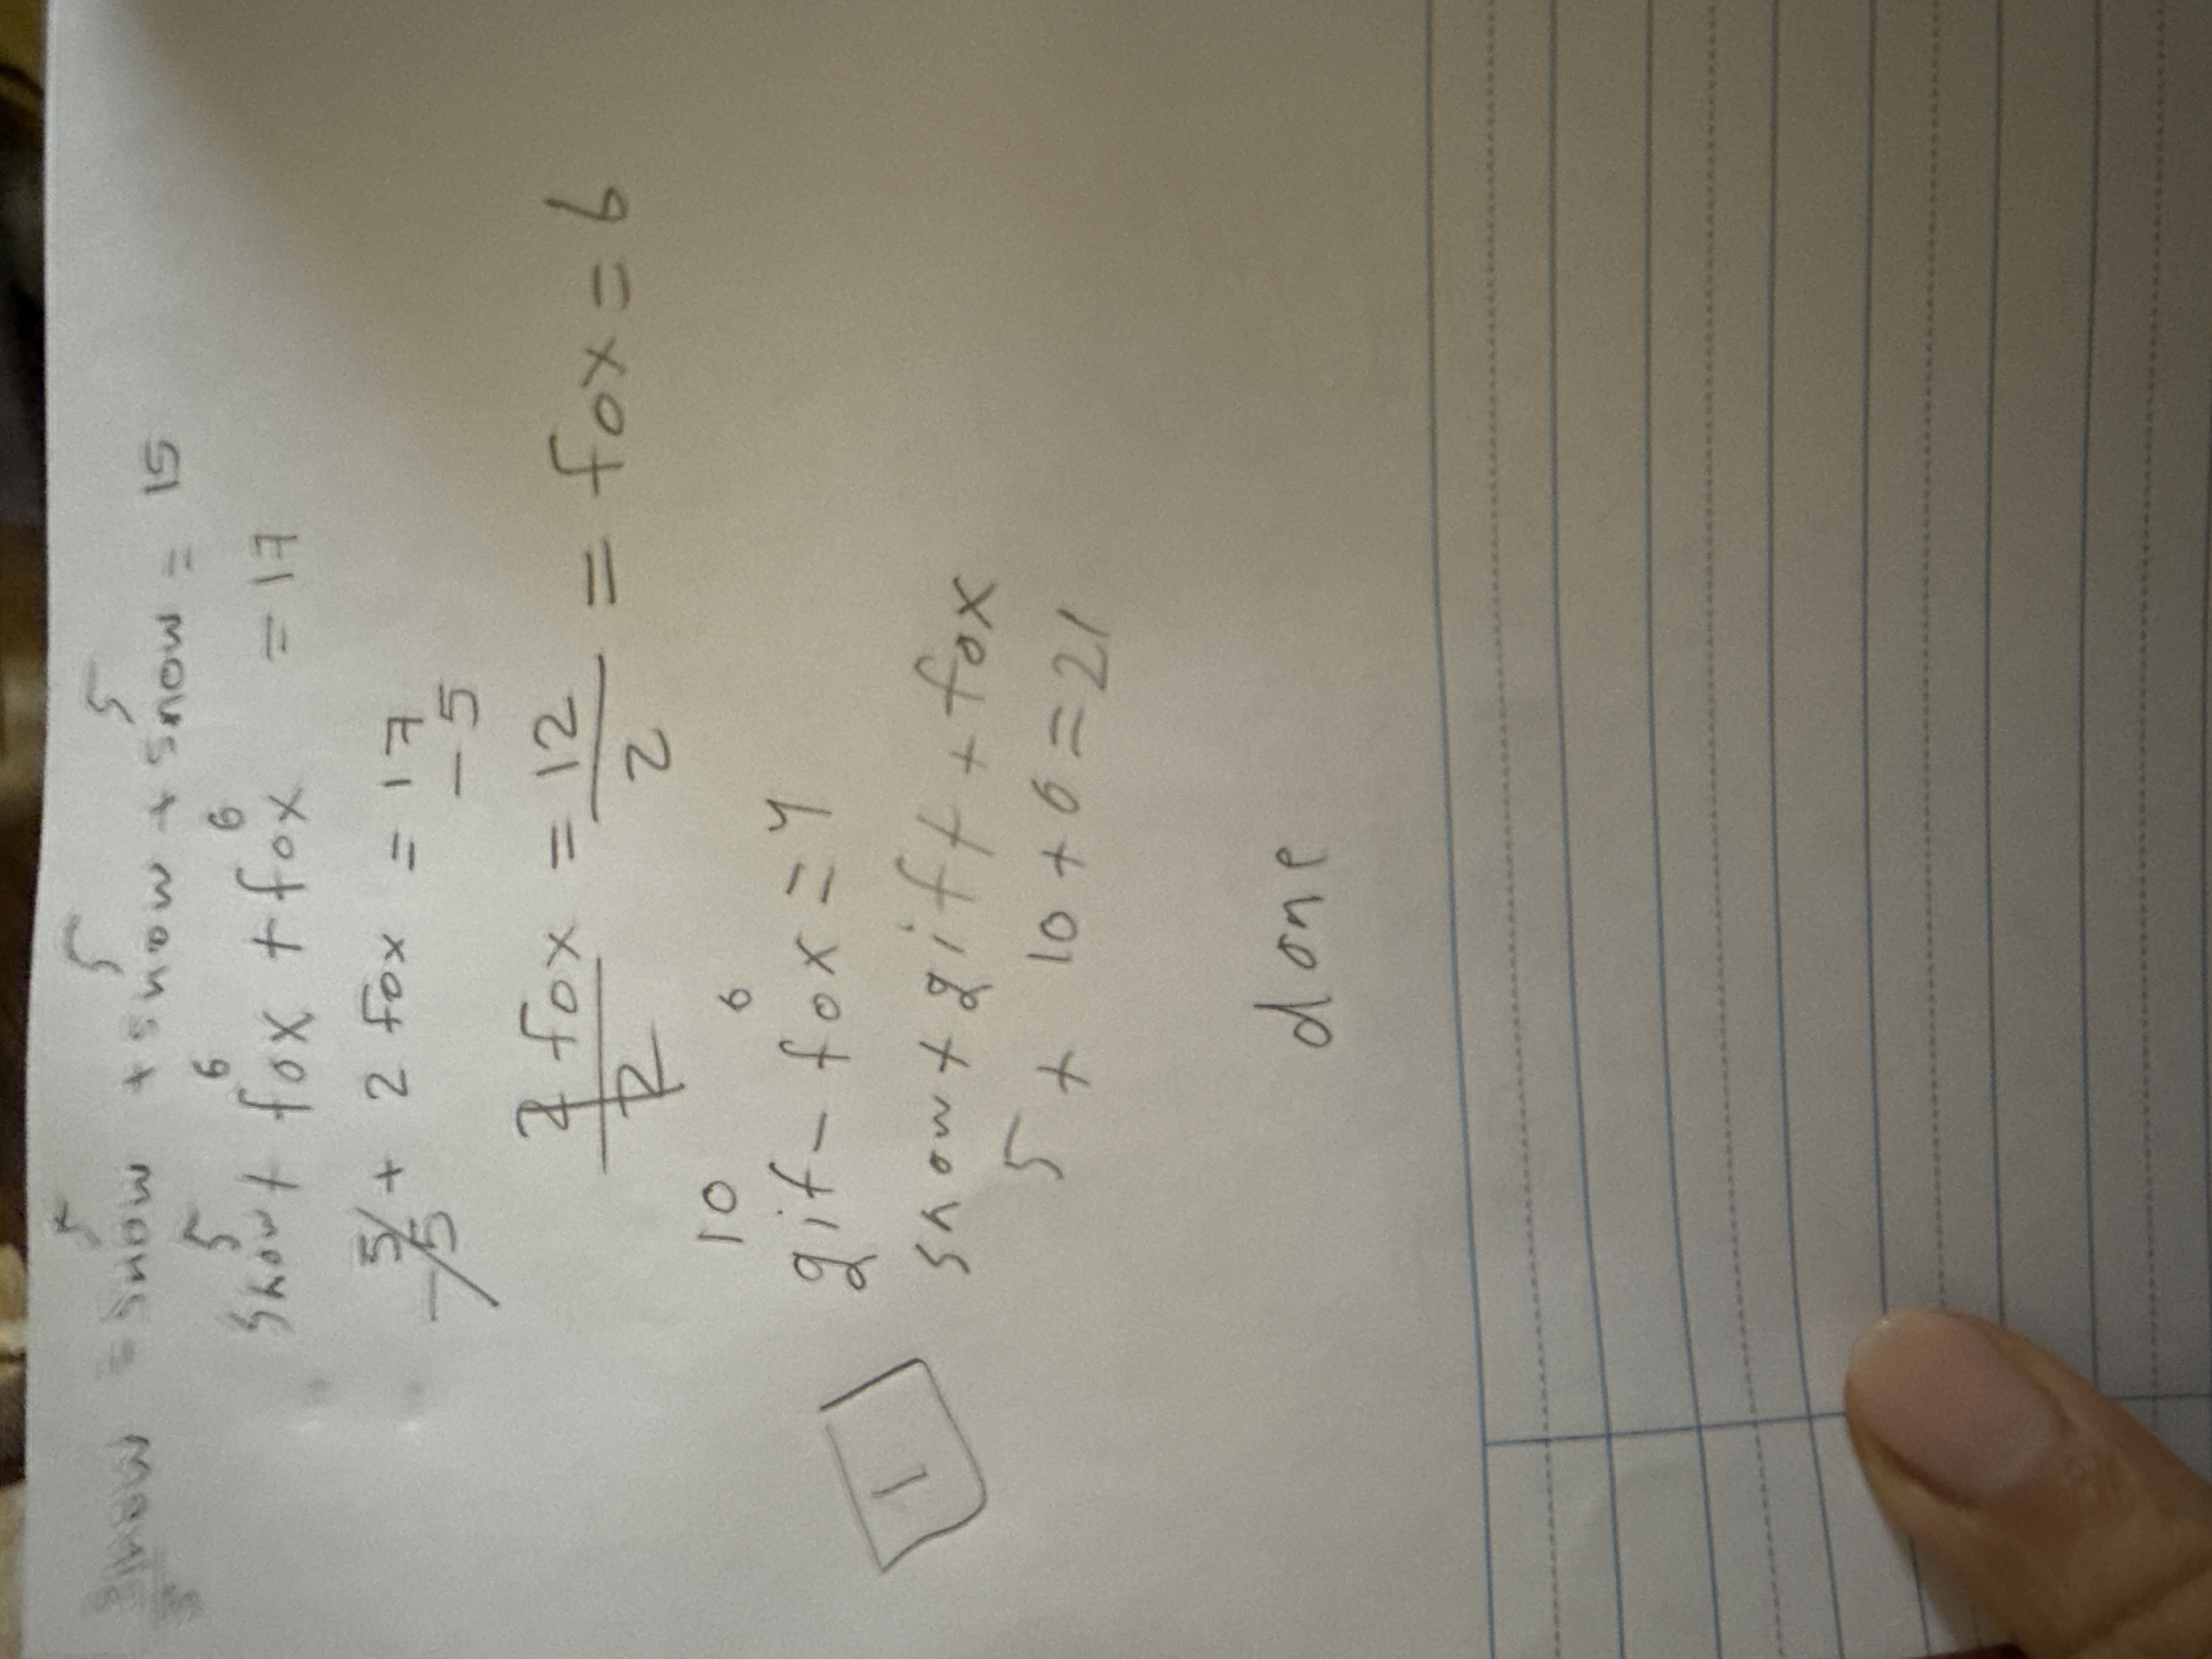 5 5 5
= snow + snow + snow = 15
5 6 6
snow + fox + fox = 17
5 + 2 fox = 17
-5 -5
2 fox = 12 = fox = 6
2 2
10 6
gif - fox = 4
1
snow + gift + fox
5 + 10 + 6 = 21
done